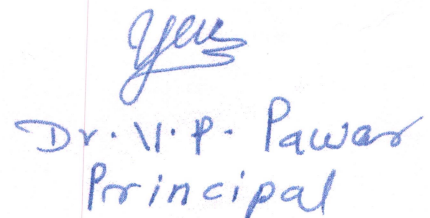 Dr. V. P. Pawar
Principal